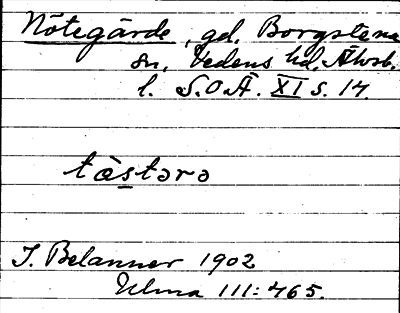 Nötegärde, gd. Borgstena
sn, Vedens hd, Älvsb.
l. S.O.Ä. XI s. 14.
tæstərə
J. Belanner 1902
Ulma 111:465.